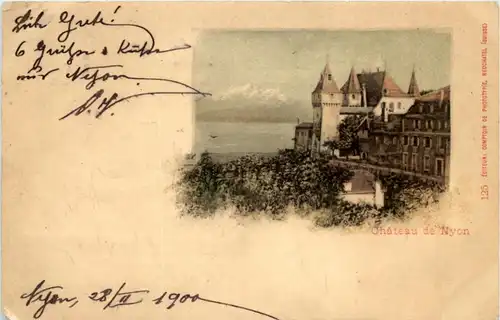 Liebe Grete!
6 Grüße & Küße
aus Nyon
Château de Nyon
125 ÉDITEURS, COMPTOIR DE PHOTOTYPIE, NEUCHATEL (SUISSE)
Nyon, 28/II 1900